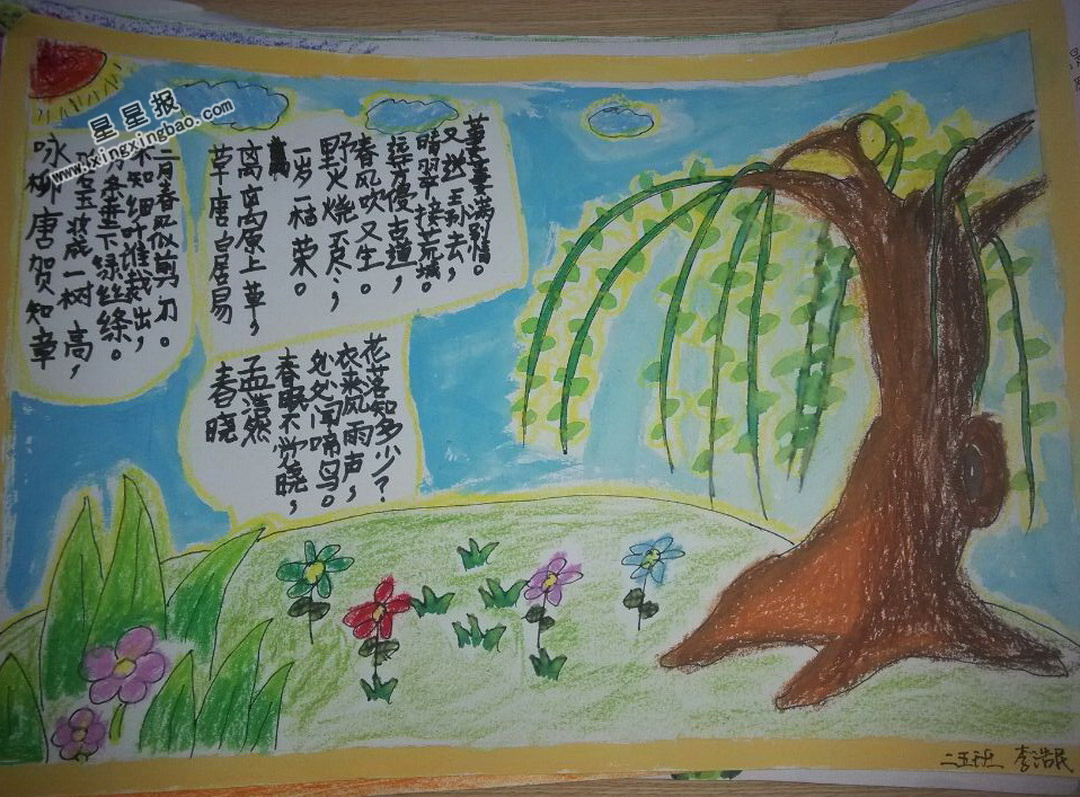 星星报
www.lxingxingbao.com
咏柳唐贺知章
玉妆成一树高,
万条垂下绿丝绦。
不知细叶谁裁出,
二月春风似剪刀。
草唐白居易
离离原上草,
一岁一枯荣。
野火烧不尽,
春风吹又生。
芳侵古道,
晴翠接荒城。
又送王孙去,
萋萋满别情。
春晓
孟浩然
春眠不觉晓,
处处闻啼鸟。
衣来风雨声,
花落知多少?
二五班 李浩民